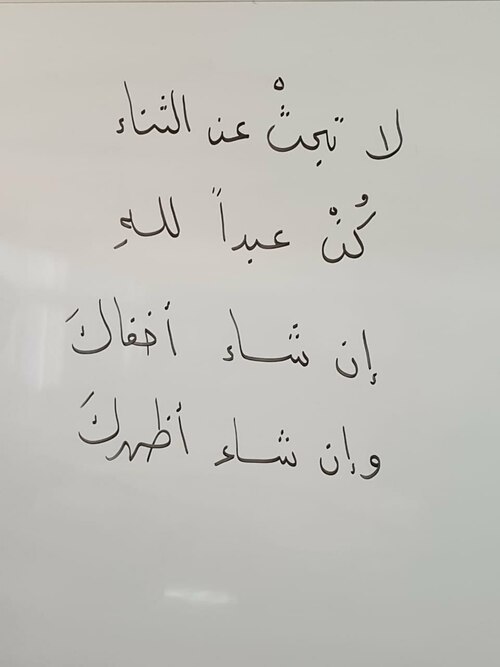 لا تبحثْ عن الثناء
كُنْ عبداً للهِ
إن شاء أخفاكَ
وإن شاء أظهركَ